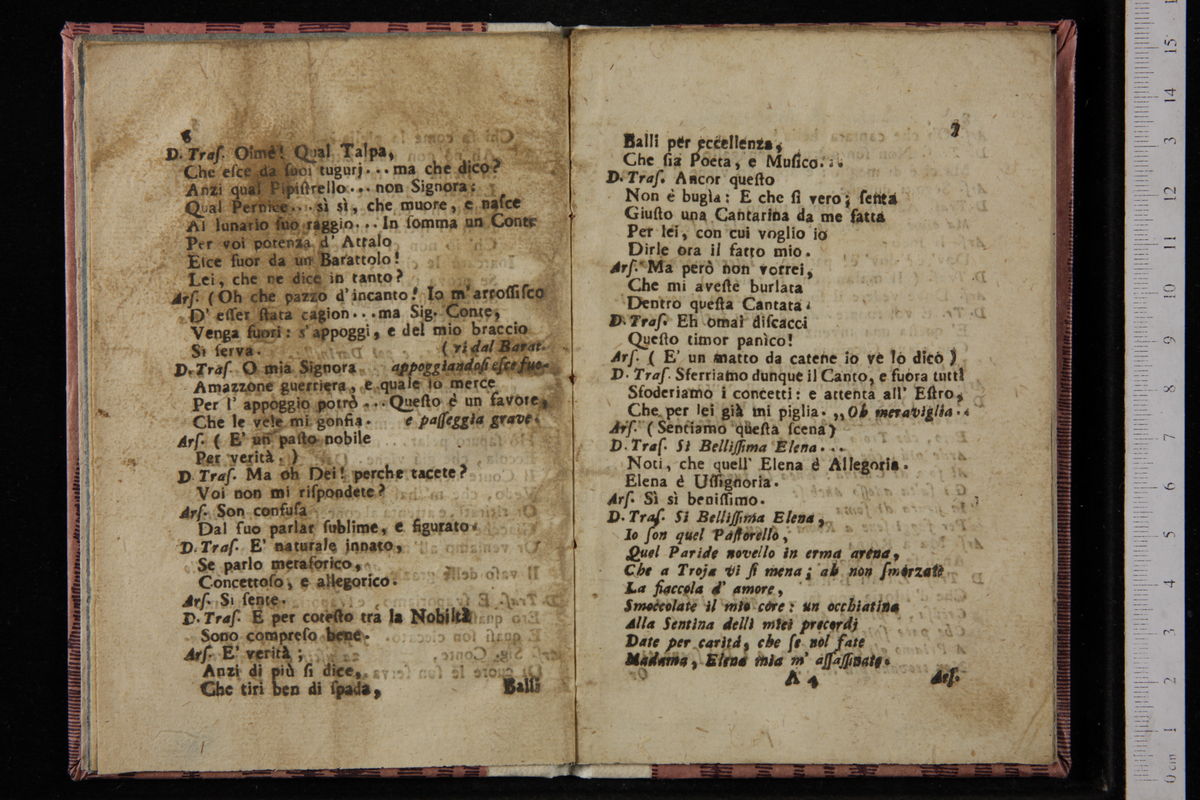 6
D. Traſ. Oimè! Qual Talpa,
Che eſce da ſuoi tugurj... ma che dico?
Anzi qual Pipiſtrello... non Signora:
Qual Pernice... sì sì, che muore, e naſce
Al lunario ſuo raggio... In ſomma un Conte
Per voi potenza d' Attalo
Eſce fuor da un Barattolo!
Lei, che ne dice in tanto?
Arſ. (Oh che pazzo d'incanto! Io m'arroſſiſco
D' eſſer ſtata cagion... ma Sig. Conte,
Venga fuori: s'appoggi, e del mio braccio
Si ſerva. (vi dal Barat.
D. Traſ. O mia Signora appoggiandoſi eſce fuo-
Amazzone guerriera, e quale io mercè
Per l' appoggio potrò... Queſto è un favore,
Che le vele mi gonfia. e paſſeggia grave.
Arſ. ( E' un paſto nobile
Per verità. )
D. Traſ. Ma oh Dei! perche tacete?
Voi non mi riſpondete?
Arſ. Son confuſa
Dal ſuo parlar ſublime, e figurato.
D. Traſ. E' naturale innato,
Se parlo metaforico,
Concettoſo, e allegorico.
Arſ. Si ſente.
D. Traſ. E per coteſto trá la Nobiltà
Sono compreſo bene.
Arſ. E' verità;
Anzi di più ſi dice,
Che tiri ben di ſpada,
Balli
7
Balli per eccellenza,
Che ſia Poeta, e Muſico...
D. Traſ. Ancor queſto
Non è bugìa: E che ſi vero; ſenta
Giuſto una Cantarina da me fatta
Per lei, con cui voglio io
Dirle ora il fatto mio.
Arſ. Ma però non vorrei,
Che mi aveſte burlata
Dentro queſta Cantata.
D. Traſ. Eh omai diſcacci
Queſto timor panìco!
Arſ. ( E' un matto da catene io ve lo dicò )
D. Traſ. Sferriamo dunque il Canto, e fuora tutti
Sfoderiamo i concetti: e attenta all' Eſtro,
Che per lei già mi piglia. ,,Oh meraviglia..
Arſ. (Sentiamo queſta ſcena)
D. Traſ. Sì Belliſſima Elena...
Noti, che quell' Elena è Allegoria.
Elena è Uſſignoria.
Arſ. Sì sì beniſſimo.
D. Traſ. Sì Belliſſima Elena,
Io ſon quel Paſtorello,
Quel Paride novello in erma arena,
Che a Troja vi ſi mena; ah non ſmorzate
La fiaccola d' amore,
Smoccolate il mio core: un occhiatina
Alla Sentina delli miei precordj
Date per carità, che ſe nol fate
Madama, Elena mia m' aſſaſſinate.
A 4
Arſ.